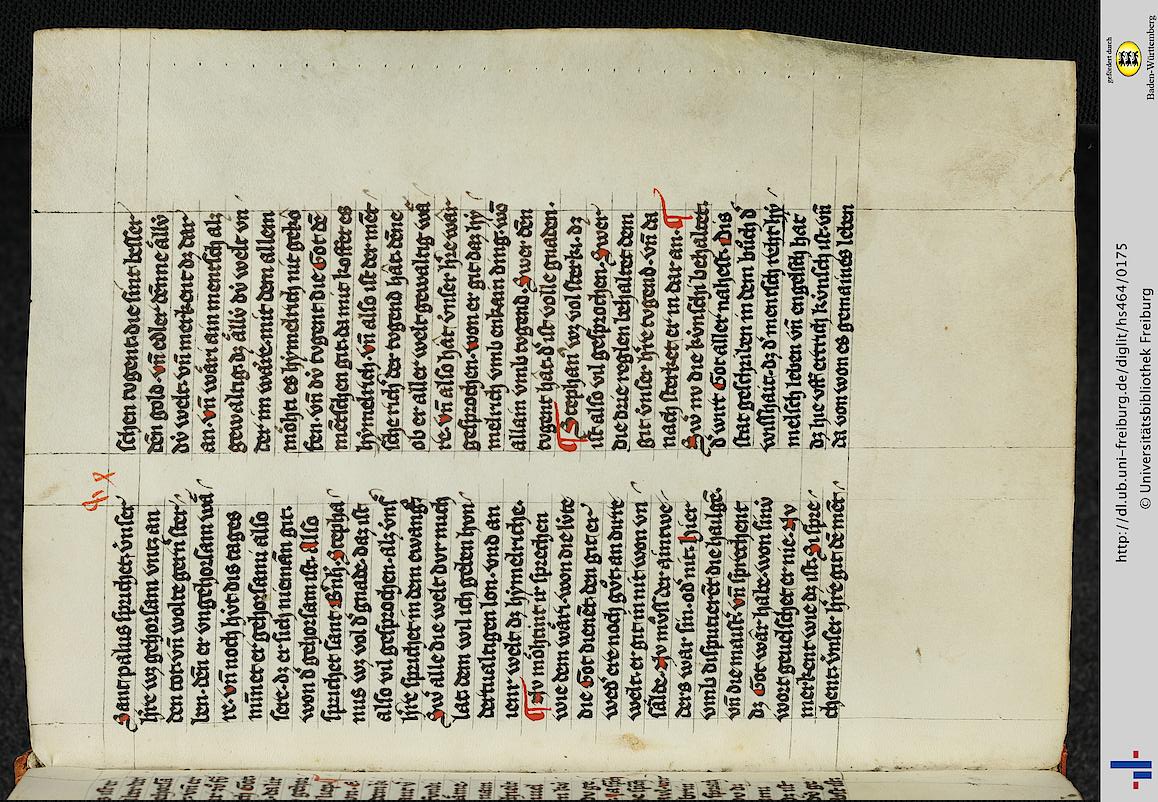 x
Sant palus sprichet· vnser
h̄re wz gehorsam vntz an
den tot· vn̄ wolte gern ster
ben· den er vngehorsam wā
re· vn̄ noch hvt dis tages
minnet er gehorsami also
sere· dz er sich nieman git·
won d gehorsam ist· also
sprichet sant Stephā
nus wz vol d gnade· daz ist
also vil gesprochen· alz vnſ
h̄re sprichet in dem ewangͥ
Sw alle die welt dvr mich
lat· dem wil ich geben hvn
dertualtigen lon· vnd an
ienr welt dz hymelriche·
Nv möhtint ir sprechen
wie dem wäri· won die lvte
die Got dienēt· den git er
wed ere noch gv̊t· an dirre
welt· er git in nit won vn
sälde· Nv mv̊ss der aintwe
ders war sin· od nit· hier
vmb disputierēt die hailgē·
vn̄ die maist̄· vn̄ sprechent
dz Got war habe· won sinv
wort geuelschet er nie· Nv
merkent wie dz ist· Si spre
chent· vnser h̄re git dē mēn
schen tugent· die sint besser
den gold· vn̄ edler denne ällv
dv welt· vn̄ merkent dz dar
an· vn̄ wäri ain mentsch alz
gewaltig· dz ällv dv welt vn
der im wäre· mit dem allem
möht es hymelrich nit geko
fen· vn̄ dv tugent die Got dē
mētschen git· da mit koffet es
hymelrich· vn̄ also ist der mēt
sche rich̄· der tugend hat· dēne
ob er aller welt gewaltig wā
re· vn̄ also hat vnser h̄re war
gesprochen· won er git daz hy
melrich vmb enkain ding· wō
allain vmb tugend· Swer den
tugent hat· d ist volle gnaden·
Stephan̄ wz vol sterki· dz
ist also vil gesprochen· Swer
die drie reglen behaltet dem
git vnser h̄re tugend· vn̄ da
nach sterket er in dar an·
Sw nv die kvnschi behaltet·
d wirt Got aller nähest· Dis
stat geschriben in dem bůch d
wisshait· dz d mensch reht hy
melsch leben vn̄ engelsch hat
dz hie vff ertrich kvnsch ist· vn̄
da von won es gemaines leben
gefördert durch
Baden-Württemberg
http://dl.ub.uni-freiburg.de/diglit/hs464/0175
© Universitätsbibliothek Freiburg